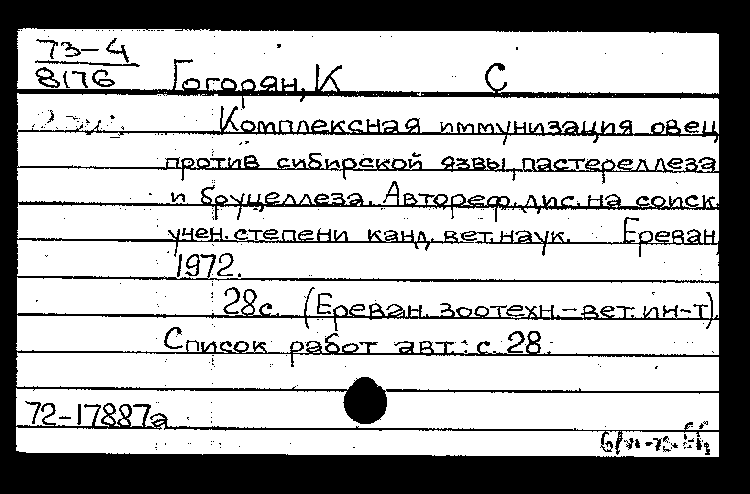 73-4
8176 Гогорян, К С
Комплексная иммунизация овец
против сибирской язвы, пастереллеза
и бруцеллеза. Автореф. дис. на соиск.
учен. степени канд. вет. наук. Ереван,
1972.
28с. (Ереван. зоотехн.-вет. ин-т).
Список работ авт.: с. 28.
72-17887а